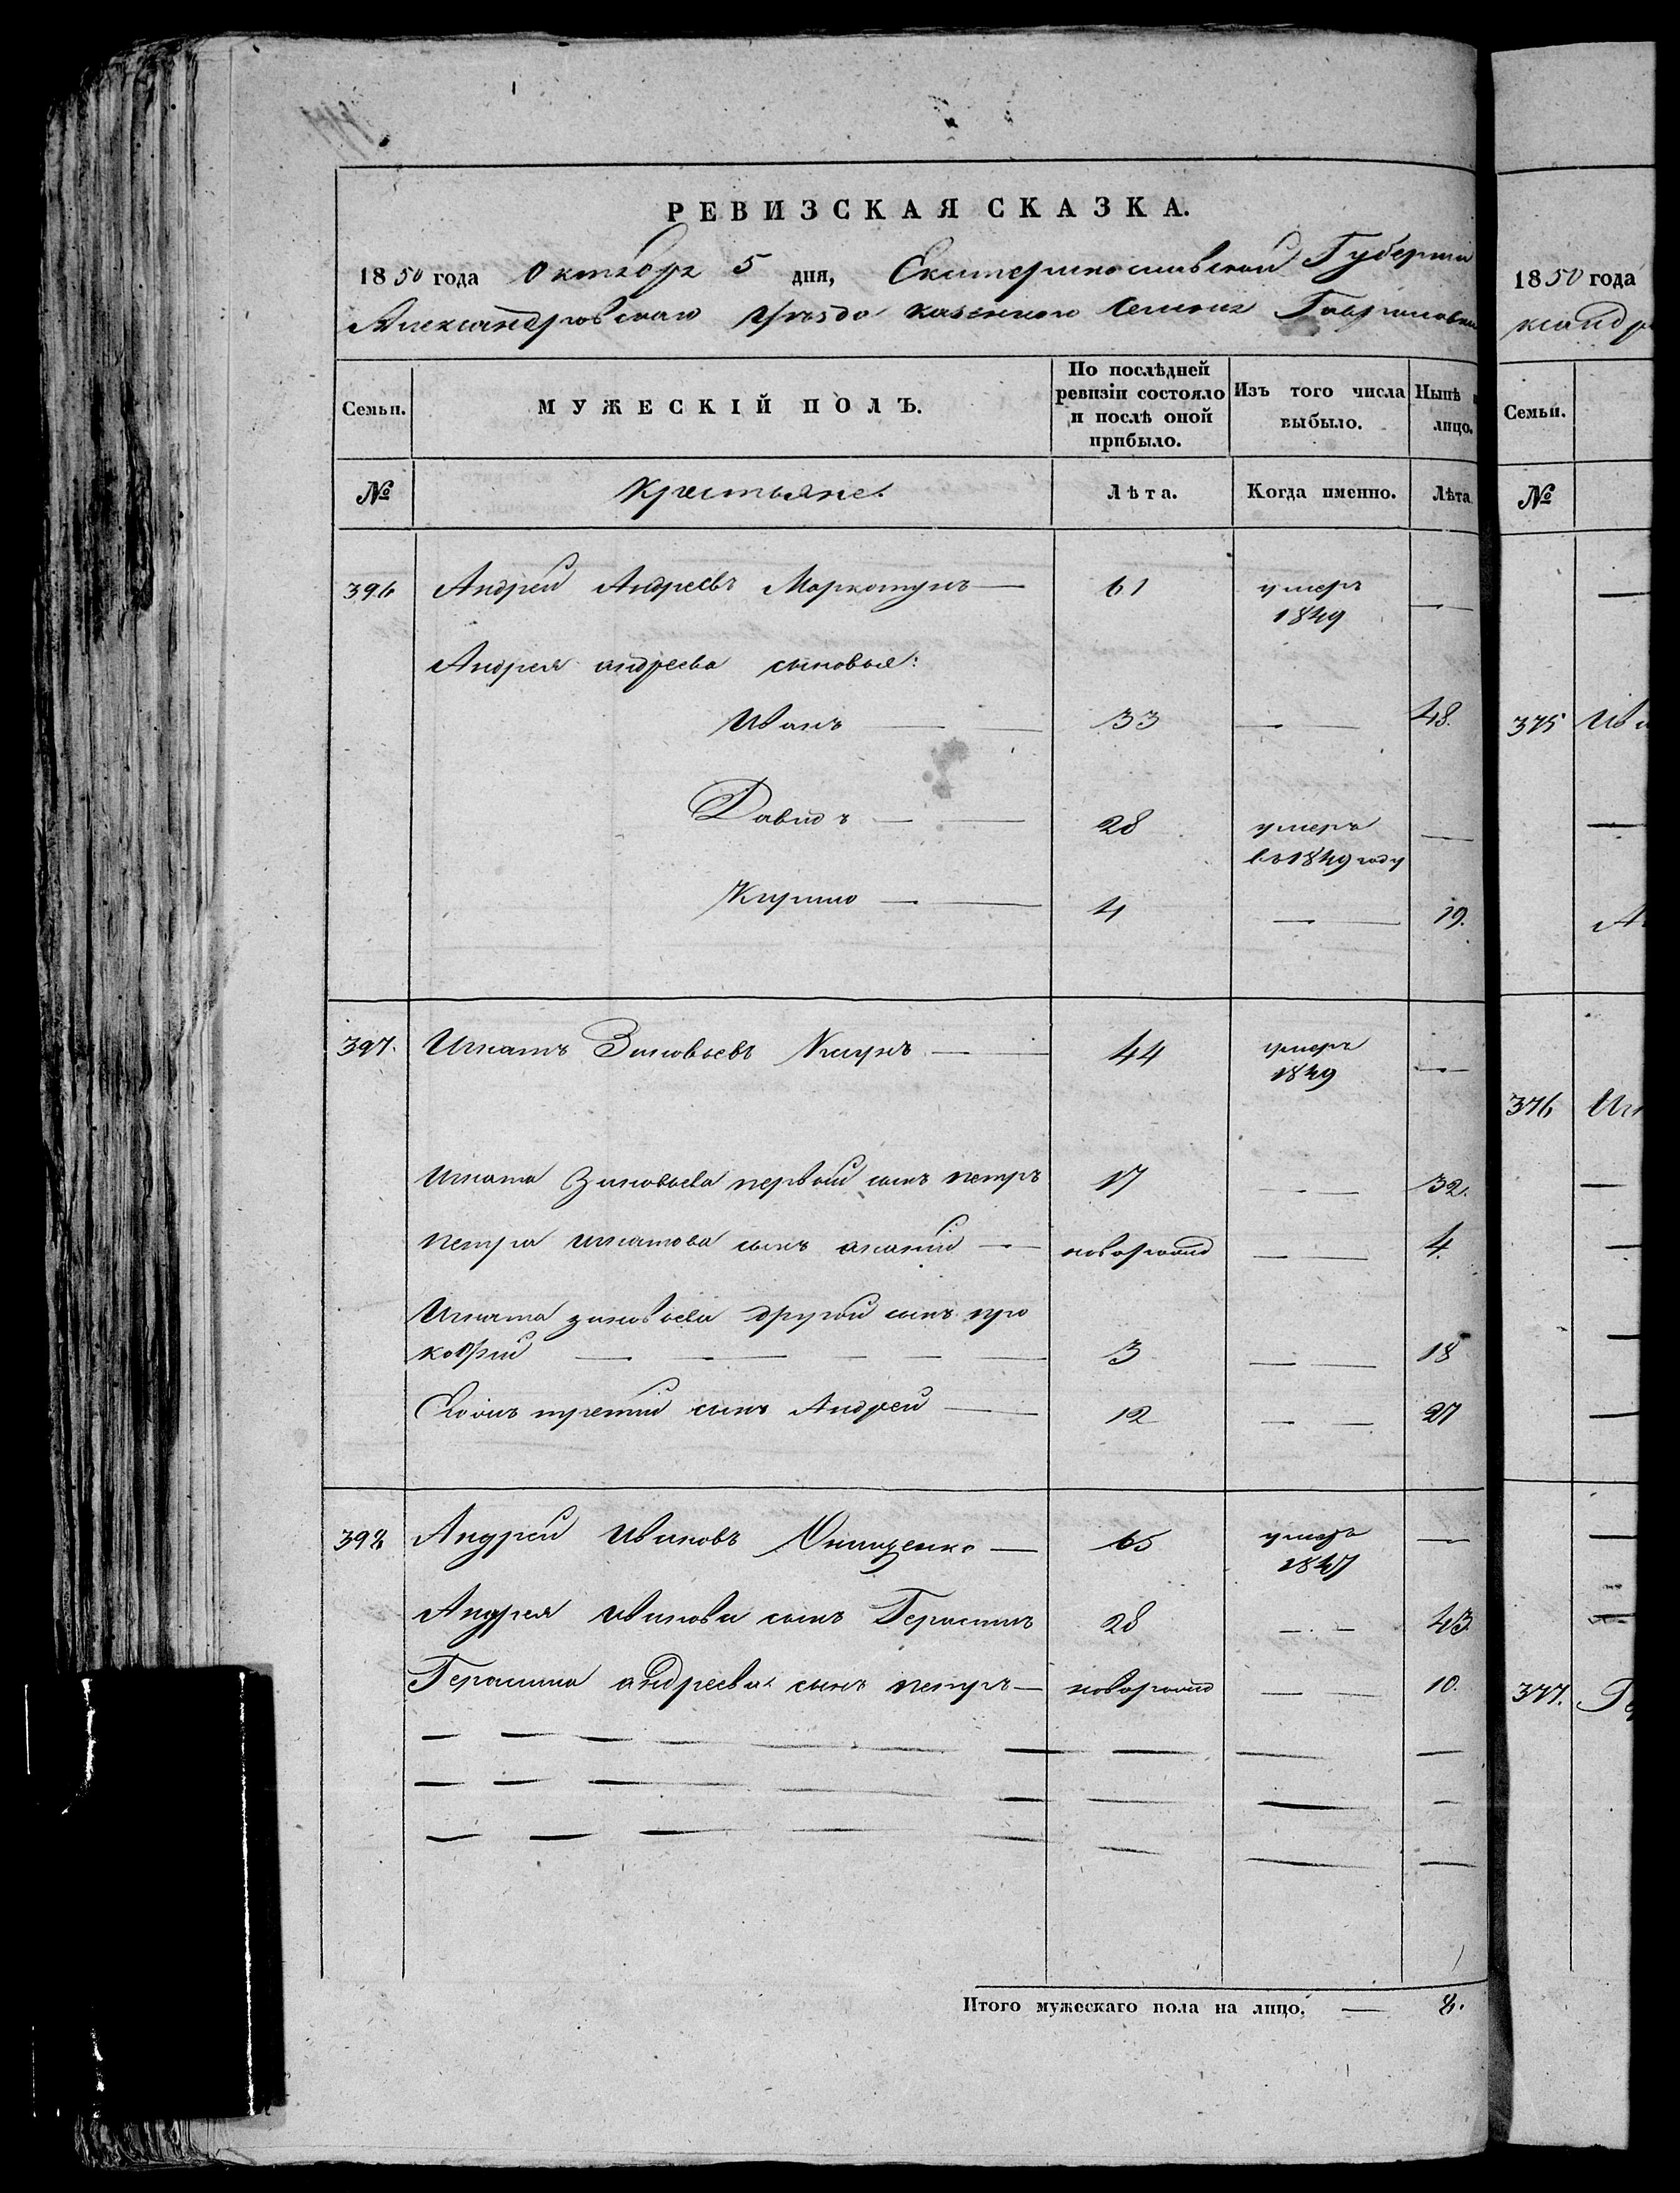 РЕВИЗСКАЯ СКАЗКА.
1850 года Октября 5 дня, Екатеринославской Губерніи
Александровскаго уѣзда казеннаго селенія Гавриловки
Семьи. МУЖЕСКІЙ ПОЛЪ. По послѣдней ревизіи состояло и послѣ оной прибыло. Изъ того числа выбыло. Нынѣ лицо.
№ Крестьяне. Лѣта. Когда именно. Лѣта
396 Андрей Андреевъ Маркотунъ — 61 умеръ 1849 —
Андрея андреева сыновья:
Иванъ — 33 — 48.
Давидъ — 28 умеръ въ 1849 году —
Кирило — 4 — 19.
397. Игнатъ Зиновьевъ 44 умеръ 1849 —
Игната Зиновьева первый сынъ петръ 17 — 32.
петра игнатова сынъ ананій — новорожд — 4.
Игната зиновьева другой сынъ про
кофій — 3 — 18
Егожъ третій сынъ Андрей — 12 — 27
398 Андрей Ивановъ Онищенко — 65 умеръ 1847 —
Андрея иванова сынъ Герасимъ 28 — 43.
Герасима андреева сынъ петръ — новорожд — 10.
Итого мужескаго пола на лицо. — 8.
1850 года
ксандр
Семьи.
№
375 Ива
376 Иг
377. Ге